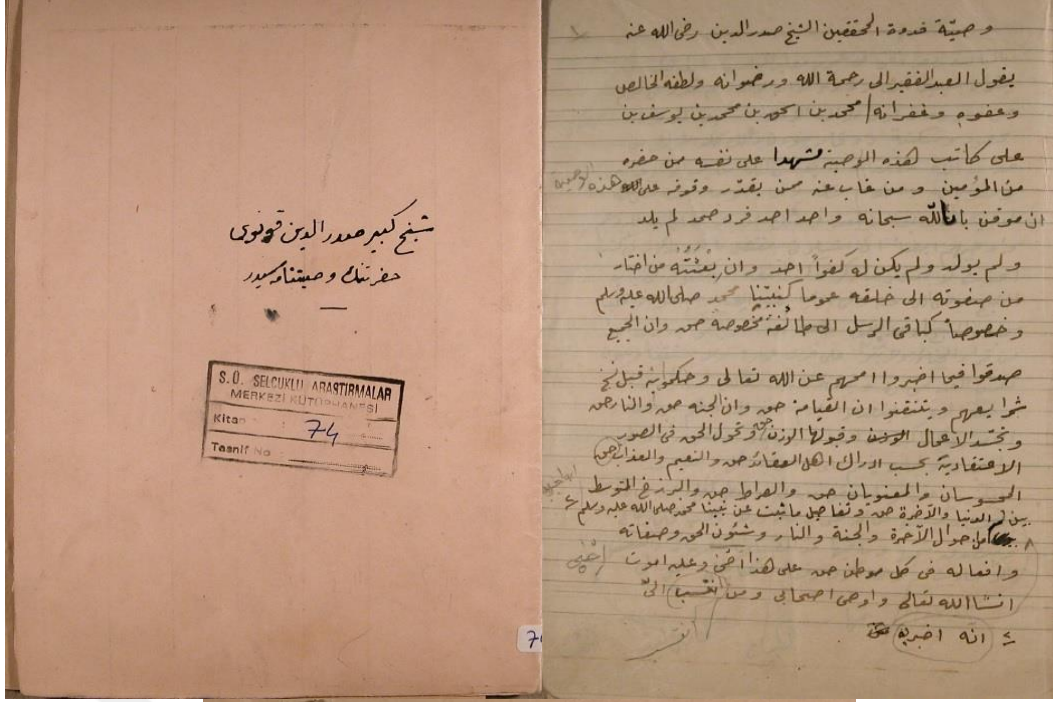 شيخ كبير صدر الدين قونوى
حضرتنك وصيتنامه سيدر
S.Ü. SELÇUKLU ARAŞTIRMALAR
MERKEZİ KÜTÜPHANESİ
Kitap : 74
Tasnif No :
7
١
وصيّة قدوة المحققين الشيخ صدرالدين رضى الله عنه
يقول العبد الفقير الى رحمة الله ورضوانه ولطفه الخالص
وعفوه وغفرانه / محمد بن اسحق بن محمد بن يوسف بن
على كاتب هذه الوصية مشهدا على نفسه من حضره
من المؤمنين ومن غاب عنه ممن يقدّر وقوفه على هذه الوصية
انى موقن بالله سبحانه واحد احد فرد صمد لم يلد
ولم يولد ولم يكن له كفواً احد وان بعثته من اختار
من صفوته الى خلقه عموما كنبيّنا محمد صلى الله عليه وسلم
وخصوصاً كباقى الرسل الى طائفة مخصوصة حق وان الجميع
صدقوا فيما اخبروا امحهم عن الله تعالى وحكموا به قبل نسخ
شرايعهم ويتنقنوا ان القيامة حق وان الجنه حق والنار حق
وتجسّد الاعمال وقبولها الوزن حق وتحول الحق فى الصور
الاعتقادية بحسب ادراك اهل العقائد حق والنعيم والعذاب حق
المحسوسان والمعنويان حق والصراط حق والبرازخ المتوسط
بين الدنيا والآخرة حق وتفاصيل ما ثبت عن نبينا محمد صلى الله عليه وسلم ٤
من احوال الآخرة والجنة والنار وشئون الحق وصفاته
وافعاله فى كل موطن حق على هذا احَىٰ وعليه اموت
انشاالله تعالى واوصى اصحابى ومن انتسب الىّ
٤ انه اخبر به حق